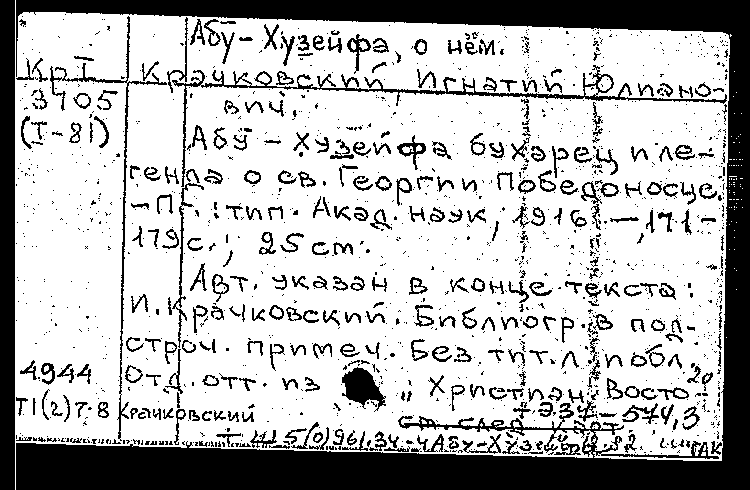 Абу-Хузейфа, о нём.
Кр I Крачковский, Игнатий Юлиано-
3705 вич.
(I-81) Абу-Хузейфа бухарец и ле-
генда о св. Георгии Победоносце.
-Пг.: тип. Акад. наук, 1916. —,171-
179 с.; 25 см.
Авт. указан в конце текста:
И. Крачковский. Библиогр. в под-
строч. примеч. Без тит. л. и обл.
4944 Отд. отт. из „Христиан. Восто-
Т1(2) 7.8 Крачковский
см. след. карт.